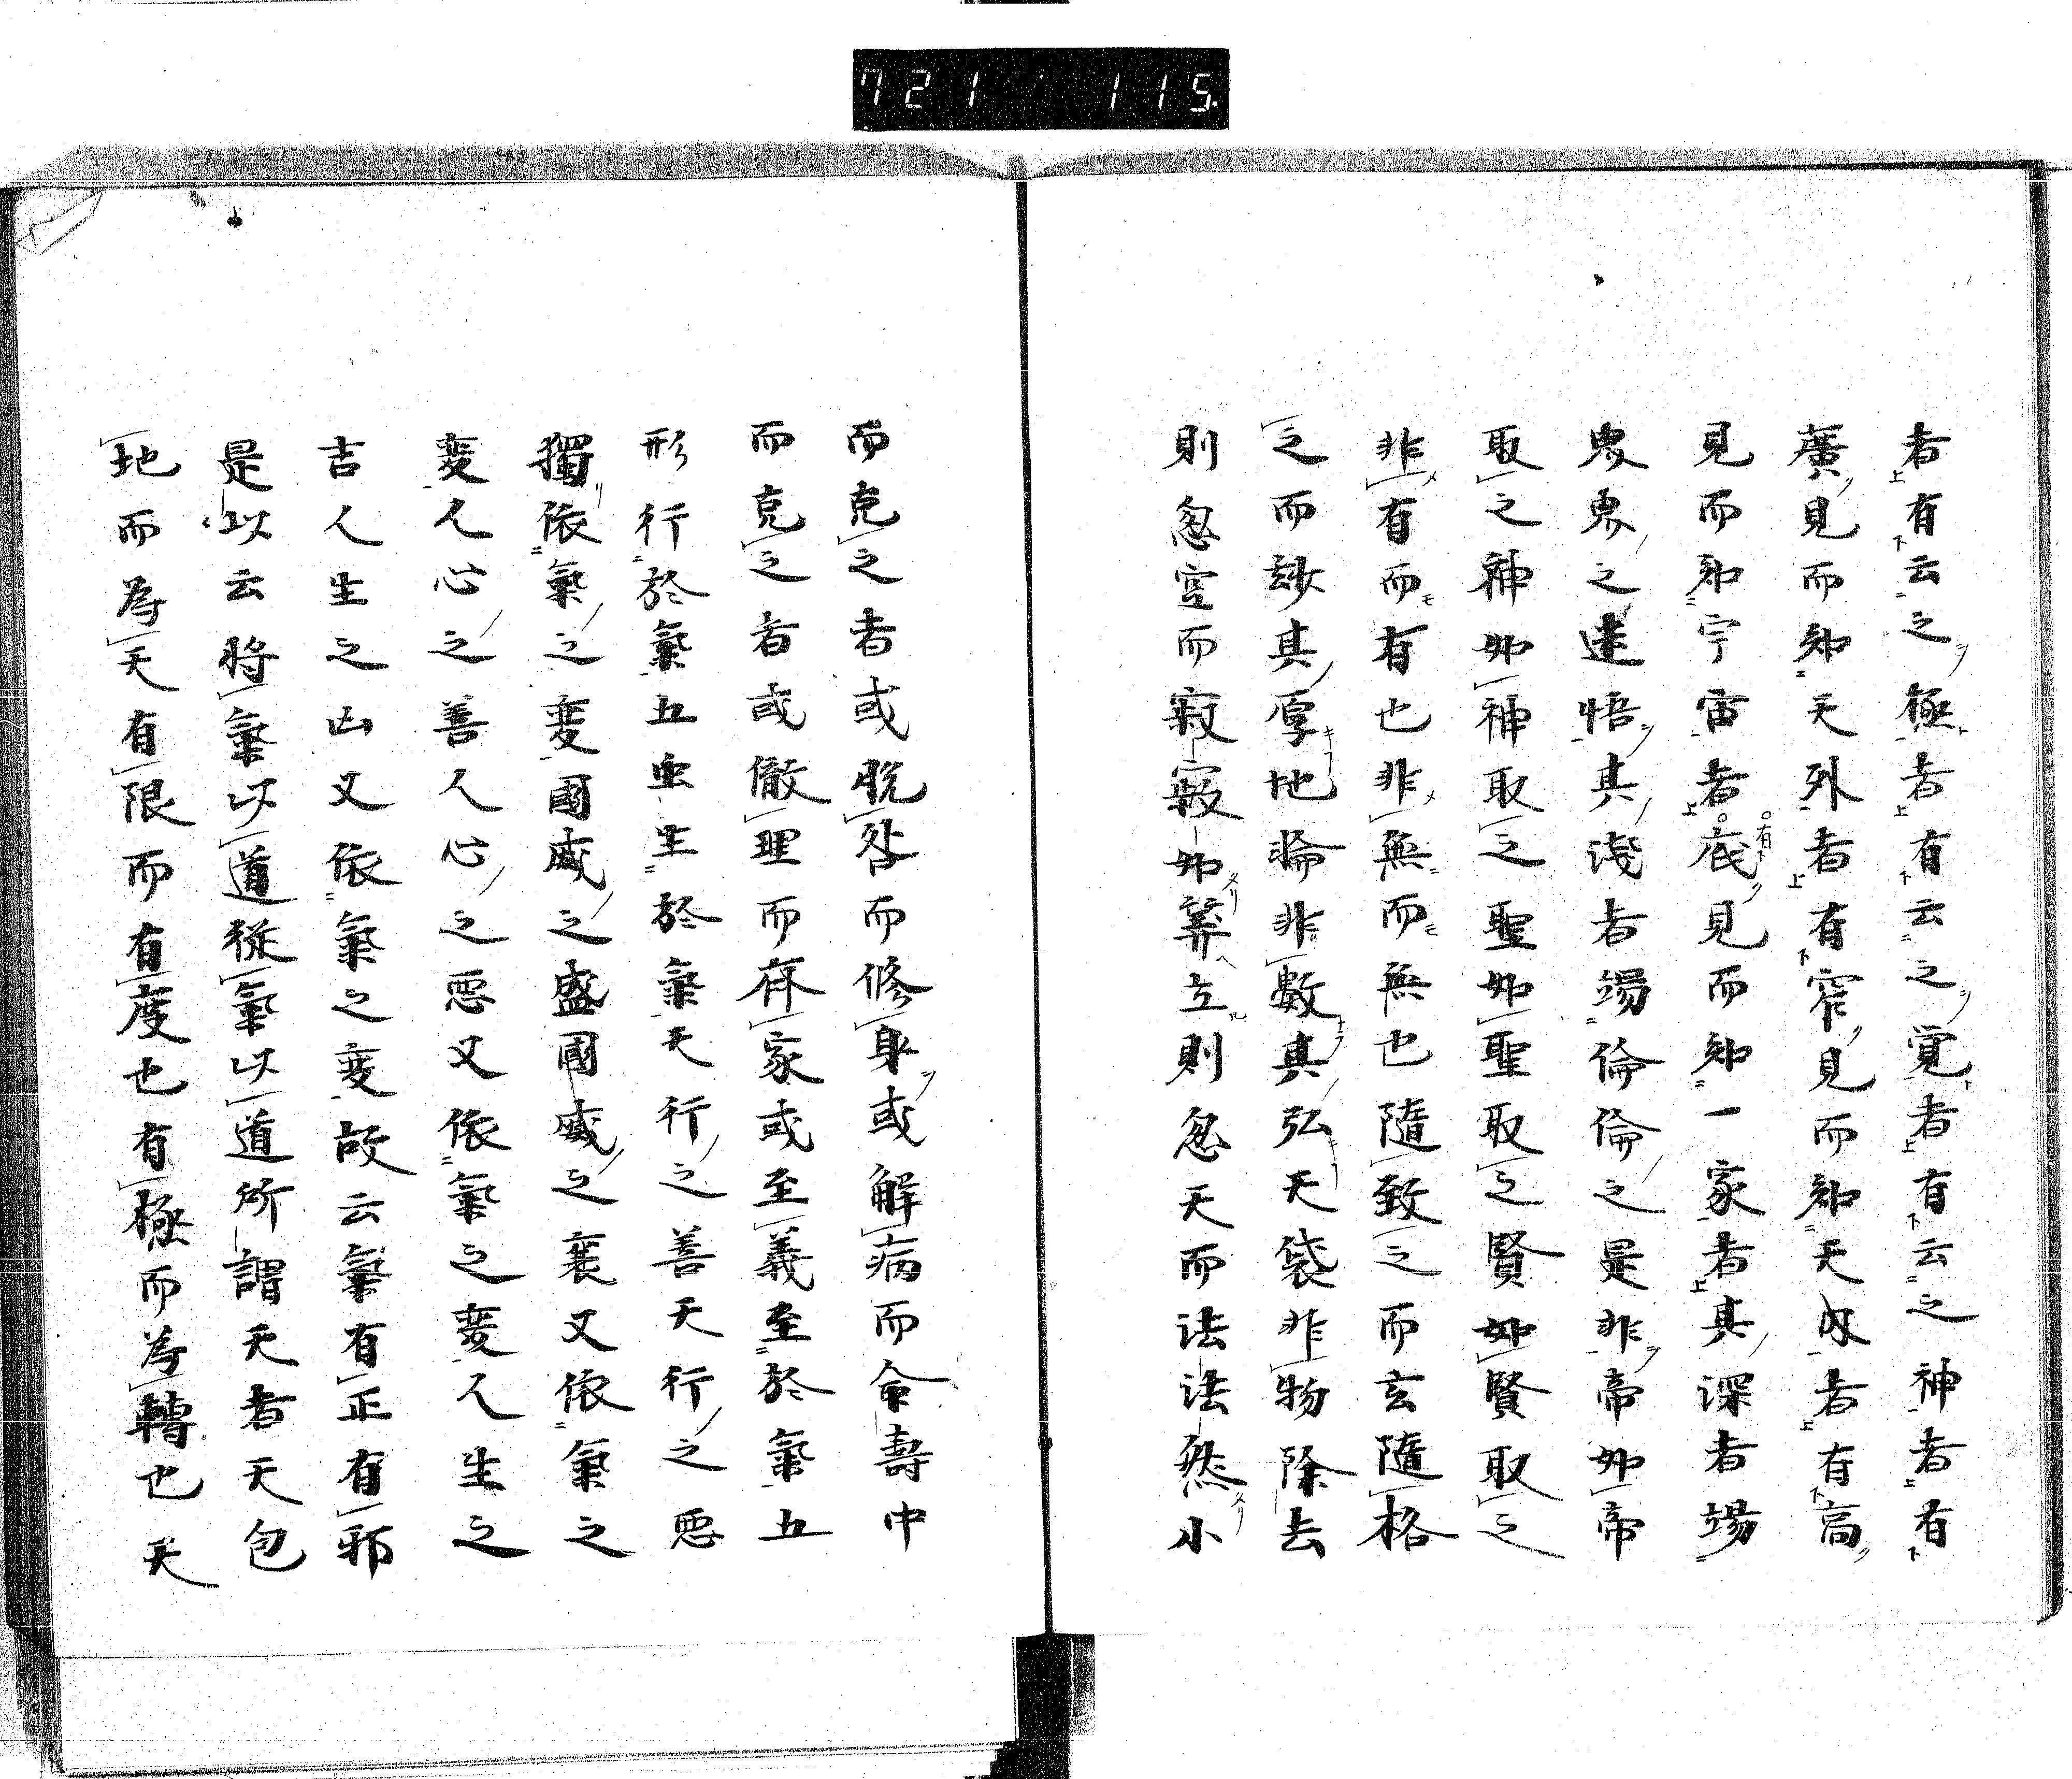 721 115.
者有云之極者有云之覚者有云之神者有
廣見而知天外者有窄見而知天内者有高
見而知宇宙者有底見而知一家者其深者場
界界之迷悟其淺者場倫倫之是非帝如帝
取之神如神取之聖如聖取之賢如賢取之
非有而有也非無而無也隨致之而玄隨格
之而玅其厚地輪非數其弘天袋非物除去
則忽空而寂寂如葬立則忽天而法法然小
而克之者或脱咎而修身或解病而命壽中
而克之者或徹理而存家或至義至於氣五
形行於氣五虫生於氣天行之善天行之悪
獨依氣之変國威之盛國威之衰又依氣之
変人心之善人心之悪又依氣之変人生之
吉人生之凶又依氣之変故云氣有正有邪
是以云將氣以道従氣以道所謂天者天包
地而為天有限而有度也有極而為轉也天